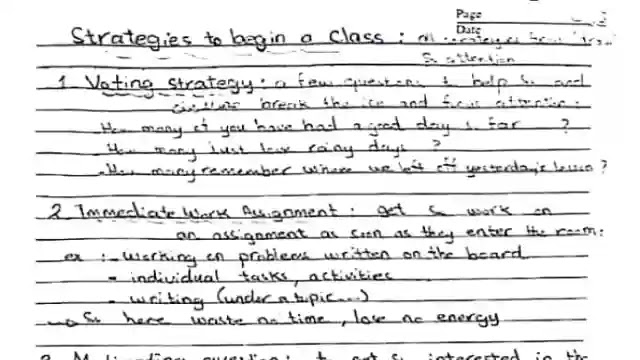 Page
Date
Strategies to begin a class : all strategies
Ss attention
1 Voting strategy : a few questions to help Ss and
break the ice and focus attention :
How many of you have had a good day so far ?
How many just love rainy days ?
- How many remember where we left off yesterday's lesson ?
2 Immediate Work Assignment : get Ss work on
an assignment as soon as they enter the room :
ex : - working on problems written on the board
- individual tasks, activities
- writing (under a topic...)
Ss here waste no time, lose no energy
3 Motivating question : to get Ss interested in the